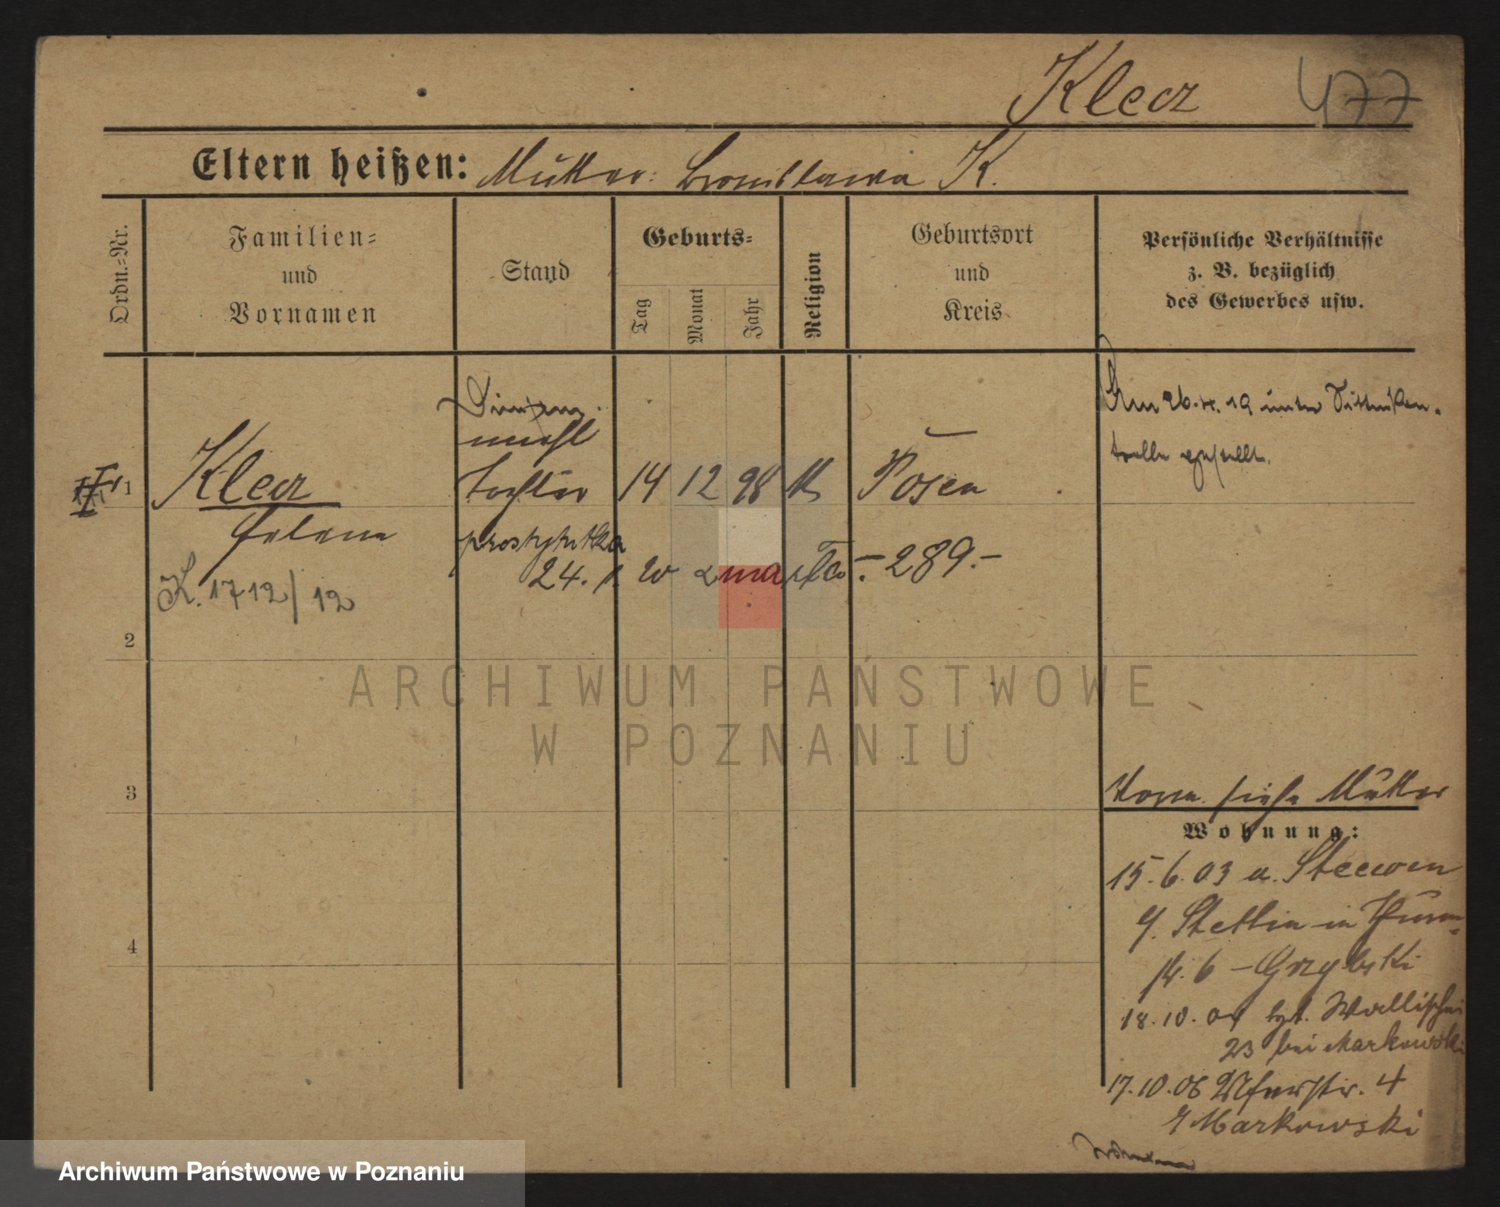 Klecz 477
Eltern heißen: Mutter: Bronislawa K.
Ordn.-Nr.
Familien-
und
Vornamen
Stand
Geburts-
Tag
Monat
Jahr
Religion
Geburtsort
und
Kreis
Persönliche Verhältnisse
z. B. bezüglich
des Gewerbes usw.
Am 26. 19 unter Sittenkon-
trolle gestellt.
unehl
1 Klecz Tochter 14 12 98 k Posen
Helene
prostytutka
24. w zmarła - 289.-
K. 1712/12
2
3
4
siehe Mutter
Wohnung:
15.6.03 a. Steewen
Stettin in
6 - Grzybski
18.10.04 Wallischei
23 bei Markowski
17.10.06 Uferstr. 4
Markowski
ARCHIWUM PAŃSTWOWE
W POZNANIU
Archiwum Państwowe w Poznaniu